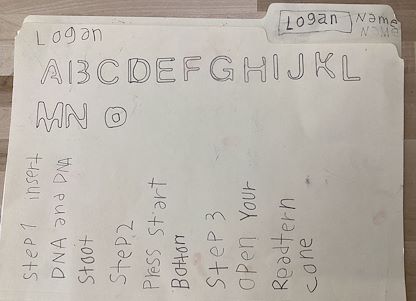 Logan
Name
Name
Logan
ABCDEFGHIJKL
MN O
Step 1 insert
DNA and DNA
Stoot
Step 2
Press Start
Bottom
Step 3
Open Your
Readtern
cone